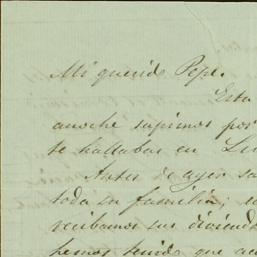 Mi querido Pepe.
Esta
anoche supimos por
te hallabas en
Antes de ayer
toda su familia;
recibamos sus
hemos tenido que